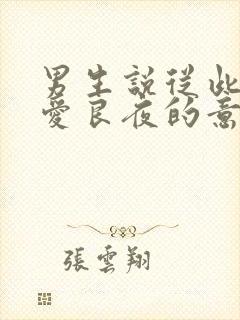 男生說從此
愛良夜的意
張雲翔